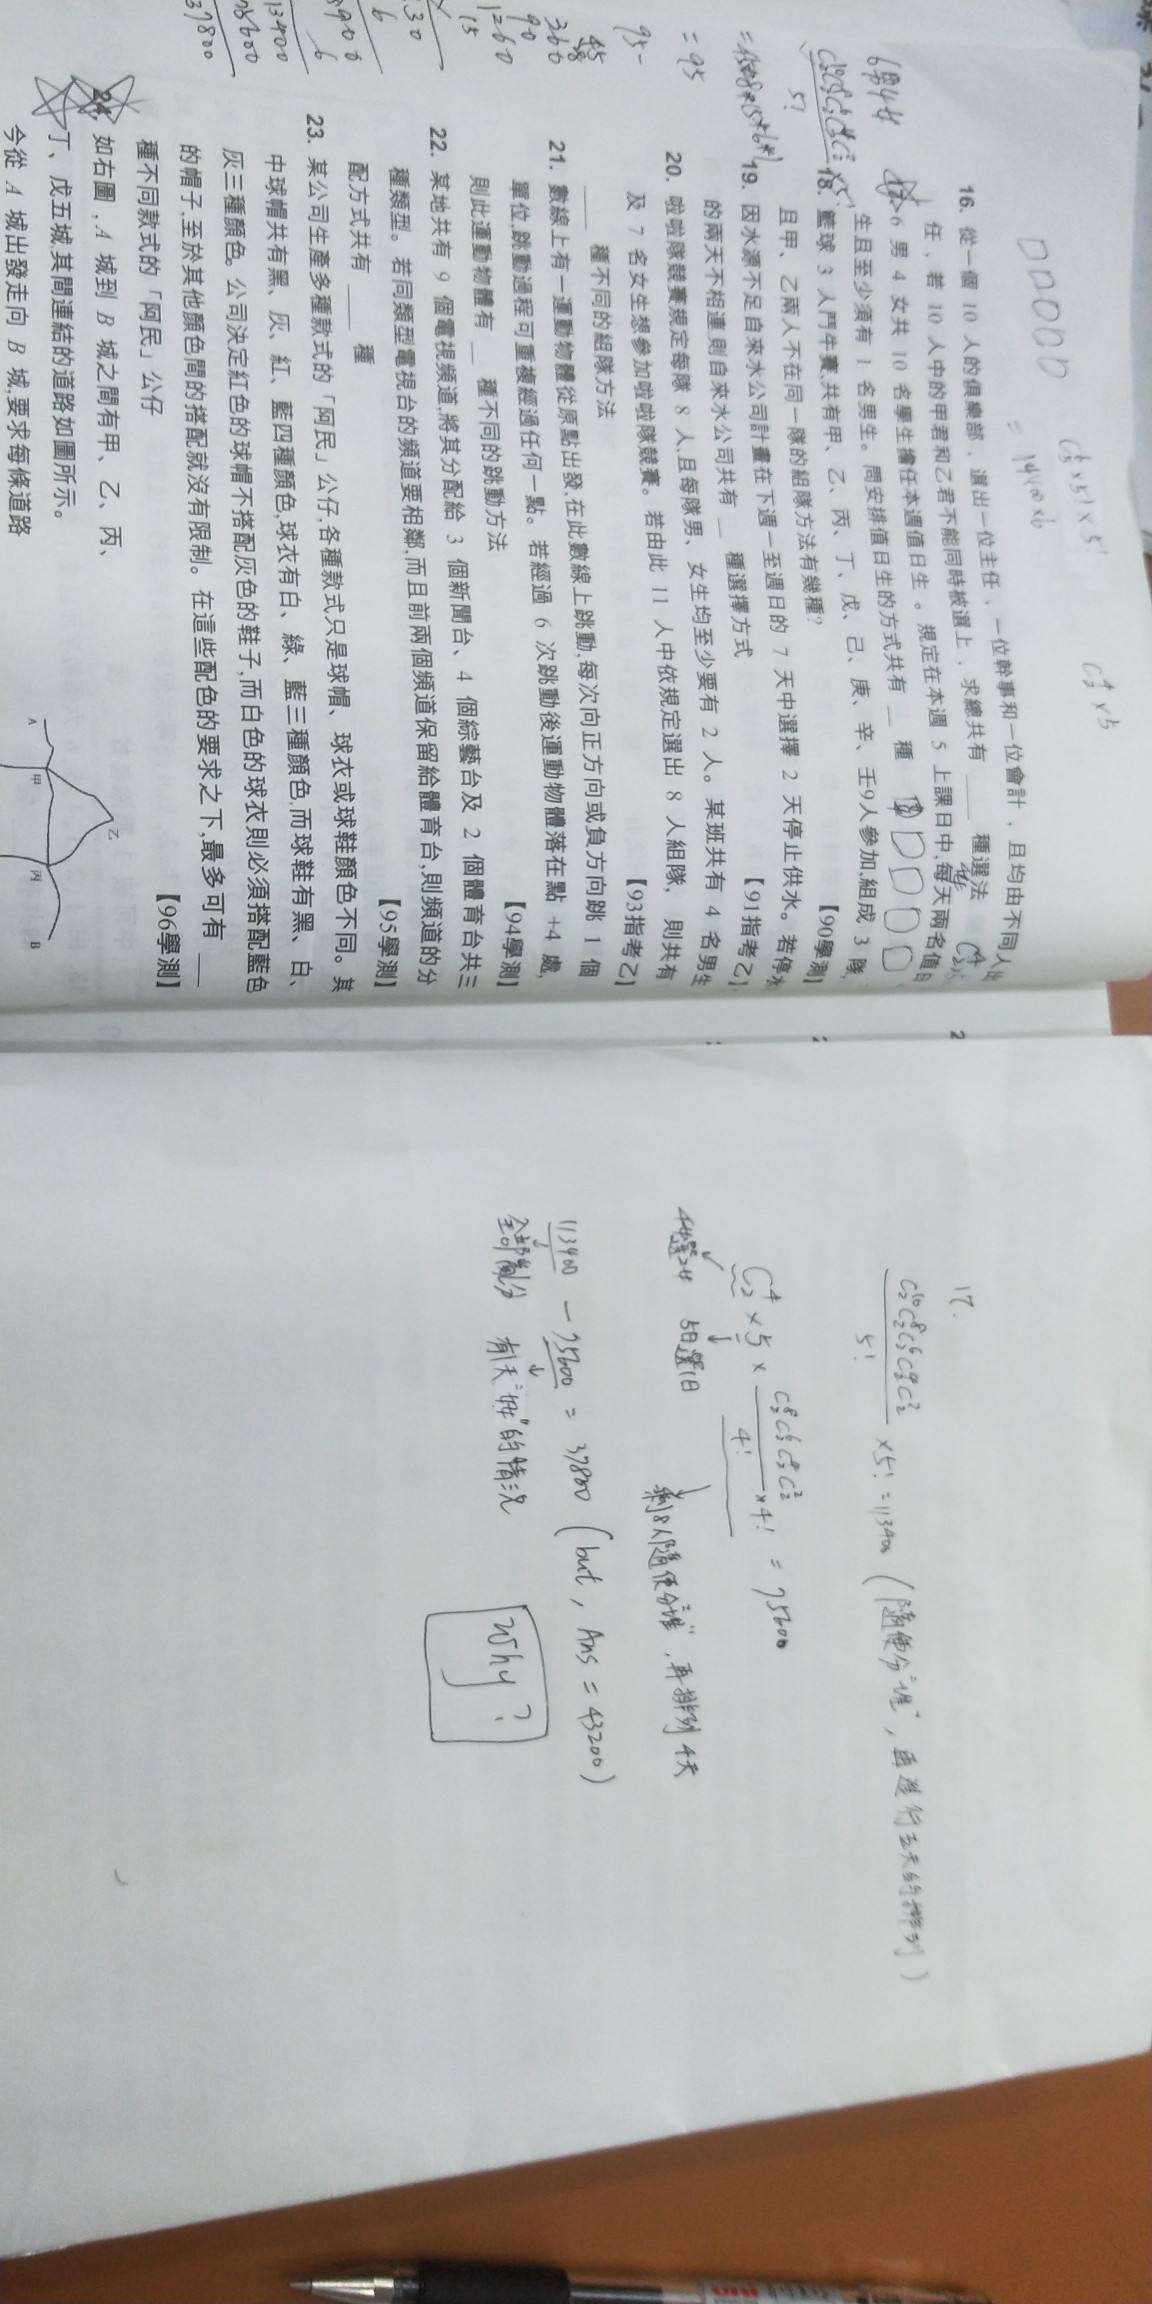 C⁶₅×5!×5!
= 14400×6
C⁴₂×5
16. 從一個 10 人的俱樂部，選出一位主任、一位幹事和一位會計，且均由不同人出
任，若 10 人中的甲君和乙君不能同時被選上，求總共有 ____ 種選法
6 男 4 女共 10 名學生擔任本週值日生。規定在本週 5 上課日中,每天兩名值日
生且至少須有 1 名男生。問安排值日生的方式共有 __ 種
【90學測】
6男4女
18. 籃球 3 人鬥牛賽,共有甲、乙、丙、丁、戊、己、庚、辛、壬9人參加,組成 3 隊,
且甲、乙兩人不在同一隊的組隊方法有幾種?
19. 因水源不足自來水公司計畫在下週一至週日的 7 天中選擇 2 天停止供水。若停水
的兩天不相連,則自來水公司共有 __ 種選擇方式
【91指考乙】
20. 啦啦隊競賽規定每隊 8 人,且每隊男、女生均至少要有 2 人。某班共有 4 名男生
及 7 名女生想參加啦啦隊競賽。若由此 11 人中依規定選出 8 人組隊, 則共有
____ 種不同的組隊方法
【93指考乙】
21. 數線上有一運動物體從原點出發,在此數線上跳動,每次向正方向或負方向跳 1 個
單位,跳動過程可重複經過任何一點。若經過 6 次跳動後運動物體落在點 +4 處,
則此運動物體有 __ 種不同的跳動方法
【94學測】
22. 某地共有 9 個電視頻道,將其分配給 3 個新聞台、4 個綜藝台及 2 個體育台共三
種類型。若同類型電視台的頻道要相鄰,而且前兩個頻道保留給體育台,則頻道的分
配方式共有 ____ 種
【95學測】
23. 某公司生產多種款式的「阿民」公仔,各種款式只是球帽、球衣或球鞋顏色不同。其
中球帽共有黑、灰、紅、藍四種顏色,球衣有白、綠、藍三種顏色,而球鞋有黑、白、
灰三種顏色。公司決定紅色的球帽不搭配灰色的鞋子,而白色的球衣則必須搭配藍色
的帽子,至於其他顏色間的搭配就沒有限制。在這些配色的要求之下,最多可有 ____
種不同款式的「阿民」公仔
【96學測】
24. 如右圖, A 城到 B 城之間有甲、乙、丙、
丁、戊五城,其間連結的道路如圖所示。
今從 A 城出發走向 B 城,要求每條道路
A
甲
乙
丙
B
17.
C¹⁰₂C⁸₂C⁶₂C⁴₂C²₂
5!
×5! = 113400 (隨便分"堆", 再進行五天的排列)
C⁴₂ × 5 ×
C⁸₂C⁶₂C⁴₂C²₂
4!
×4! = 75600
4女選2女
5日選1日
剩8人隨便分"堆", 再排列4天
113400 - 75600 = 37800 (but, Ans = 43200)
全部劃分
有1天"2女"的情況
Why?